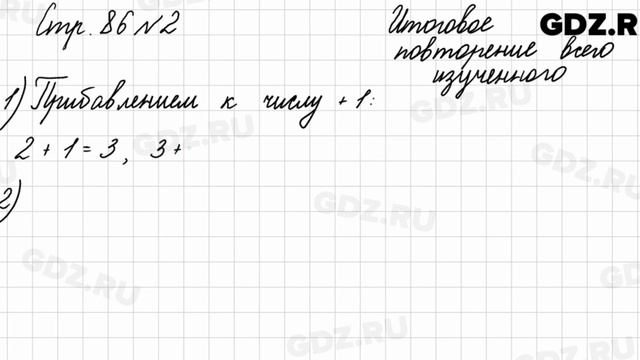 Стр. 86 №2
Итоговое
повторение всего
изученного
GDZ.R
1) Прибавлением к числу + 1:
2 + 1 = 3, 3 +
2)
GDZ.RU
GDZ.RU
GDZ.RU
GDZ.RU
GDZ.RU
GDZ.RU
GDZ.RU